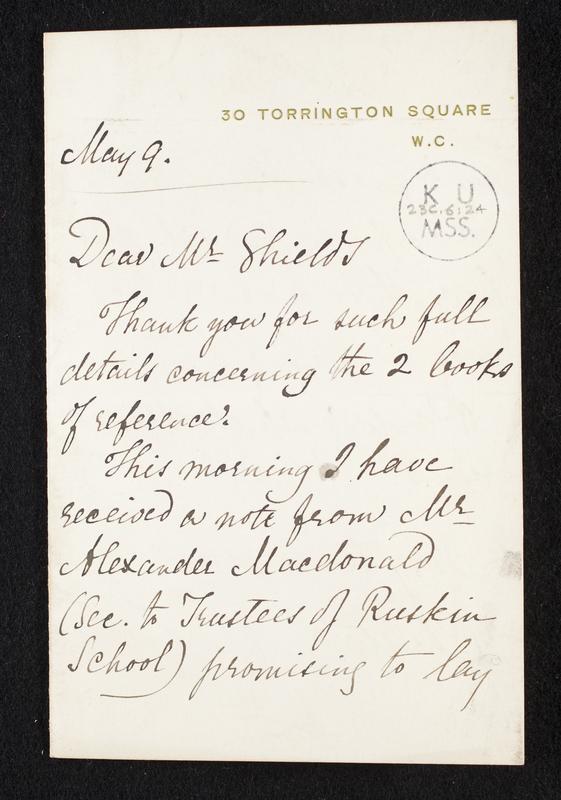 30 TORRINGTON SQUARE
W.C.
May 9.
K U
23C.6:24
MSS.
Dear Mr Shields
Thank you for such full
details concerning the 2 books
of reference.
This morning I have
received a note from Mr
Alexander Macdonald
(Sec. to Trustees of Ruskin
School) promising to lay